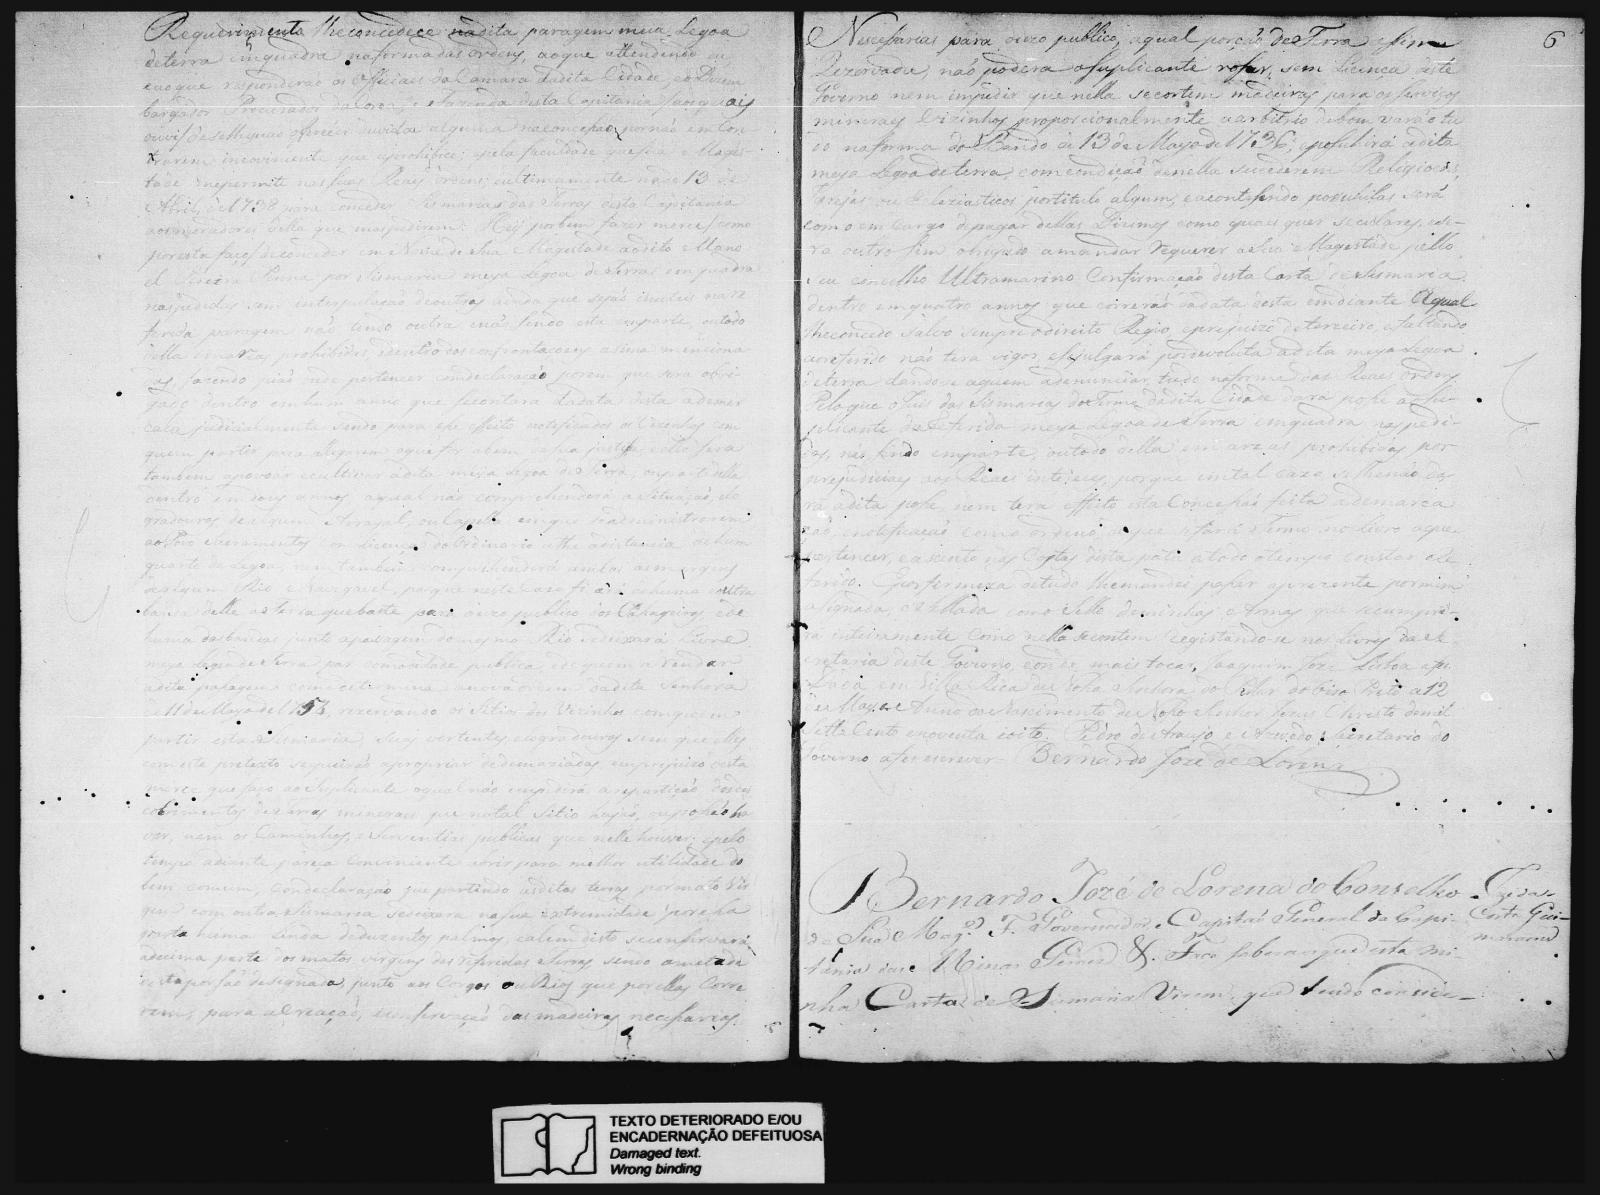 Requerimento lhe concedece na dita paragem meia Legoa
de terra em quadra na forma das ordens, ao que attendendo eu
e ao que responderaõ os Officiaes da Camara da dita Cidade, e o Dezem
bargador Procurador da Coroa e Fazenda desta Capitania
duvida alguma na concessaõ, por naõ em con
trarem inconviniente que a prohibice; e pela faculdade que Sua Mages
tade me permite nas suas Reaes ordens; e ultimamente na de 13 de
Abril de 1738 para conceder Sismarias das Terras desta Capitania
aos moradores della que mas pedirem: Hey por bem fazer merce (como
por esta faço) de conceder em Nome de Sua Magestade ao dito Mano
el Pereira por Sismaria meya Legoa de terra em quadra
nas pedidas sem interpolaçaõ de outras ainda que sejaõ inuteis na re
ferida paragem naõ tendo outra e naõ sendo esta em parte, ou todo
della em areas prohibidas, e dentro das confrontaçoens asima menciona
das, fazendo piaõ onde pertencer com declaraçaõ porem que sera obri
gado dentro em hum anno que se contará da data desta a demar
cala judicialmente sendo para esse effeito notificados os Vezinhos com
quem partir para allegarem o que for a bem de sua justiça e elle sera
tambem a povoar e cultivar a dita meya Legoa de Terra, ou parte della
dentro em dous annos, a qual naõ comprehenderá a situaçaõ, e lo
gradouros de algum Arrayal, ou Capella em que se administrarem
ao Povo Sacramentos com Licença do Ordinario athe a distancia de hum
quarto de Legoa, nem tambem comprehenderá ambas as margens
de algum Rio Navegavel, porque neste Cazo ficará de huma e outra
banda delle a terra que baste para o uzo publico dos Passageiros e de
huma das bandas junto a passagem do mesmo Rio se deixará Livre
meya Legoa de Terra para comodidade publica, e de quem arrendar
a dita passagem como determina a nova ordem da dita Senhora
de 11 de Mayo de 1753, rezervando os Sitios dos Vezinhos com quem
partir esta Sismaria, suas vertentes, e logradouros sem que elles
com este pretexto se queiraõ apropriar de demaziadas em prejuizo desta
merce que faço ao Suplicante o qual naõ impedirá a repartiçaõ dos des
cobrimentos de terras mineraes que no tal Sitio hajaõ, ou possaõ ha
ver, nem os Caminhos, e Serventias publicas que nelle houver, e pelo
tempo adiante pareça Conveniente abrir para melhor utilidade do
bem comum, Com declaraçaõ que partindo as ditas terras por mato Vir
gem com outra Sismaria se deixara na sua extremidade por ella
parte huma Linda de duzentos palmos, e alem disto se conservará
a decima parte dos matos virgens das referidas Terras sendo a metade
desta porsaõ designada junto aos Corgos ou Rios que por ellas Corre
rem, para a creaçaõ, e conservaçaõ das madeiras necessarias
Necessarias para o uzo publico, a qual porçaõ de Terra assim
Rezervada, naõ poderá o suplicante rossar, sem Licença deste
Governo nem impedir que nella se cortem madeiras para os serviços
mineraes Vizinhos proporcionalmente a arbitrio de bom varaõ tu
do na forma do Bando de 13 de Mayo de 1736; e possuhirá a dita
meya Legoa de terra com condiçaõ de nella sucederem Religioens,
Igrejas ou Ecleziasticos por titulo algum, e acontesendo possuhilas será
com o em Cargo de pagar dellas Dizimos como quaes quer seculares, e se-
ra outro sim obrigado a mandar requerer a Sua Magestade pello
seu concelho Ultramarino Confirmaçaõ desta Carta de Sismaria
dentro em quatro annos que correraõ da data desta em diante A qual
lhe concedo salvo sempre o direito Regio, e prejuizo de terceiro, e faltando
ao referido naõ terá vigor, e se julgará por devoluta a dita meya Legoa
de terra dando-se a quem a denunciar, tudo na forma das Reaes Ordens
Pelo que o Juis das Sismarias do Termo da dita Cidade dará posse ao Su
plicante da referida meya Legoa de Terra em quadra nas pedi-
das, naõ sendo em parte, ou todo della em areas prohibidas por
prejudiciaes aos Reaes interesses, porque em tal cazo se lhe naõ da
rá a dita posse, nem tera effeito esta Concessaõ feita a demarca
çaõ, e notificaçaõ como ordeno, de que se fará Termo no Livro a que
pertencer, e asento nas Costas desta para a todo o tempo constar o re
ferido. Por firmeza de tudo lhe mandei passar a prezente por mim
asignada, e sellada com o Sello de minhas Armas que se cumpri-
rá inteiramente como nella se contem registando-se nos Livros da Se
cretaria deste Governo, e onde mais tocar, Joaquim Joze Lisboa a fes
Dada em Villa Rica de Nossa Senhora do Pilar do Oiro Preto a 12
de Mayo Anno do Nascimento de Nosso Senhor Jesus Christo de mil
Sette Cento e noventa e oito. Pedro de Araujo e Azevedo, Secretario do
Governo a fes escrever = Bernardo Joze de Lorena
6
Bernardo Jozé de Lorena do Conselho
de Sua Mag.e F. Governador, e Capitaõ General da Capi-
tania das Minas Geraes &. Faço saber aos que esta mi-
nha Carta de Sismaria Virem, que tendo conside-
Carta Gui-
maraens
TEXTO DETERIORADO E/OU
ENCADERNAÇÃO DEFEITUOSA
Damaged text.
Wrong binding